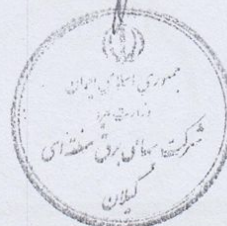 جمهوری اسلامی ایران
وزارت نیرو
شرکت سهامی برق منطقه‌ای
گیلان